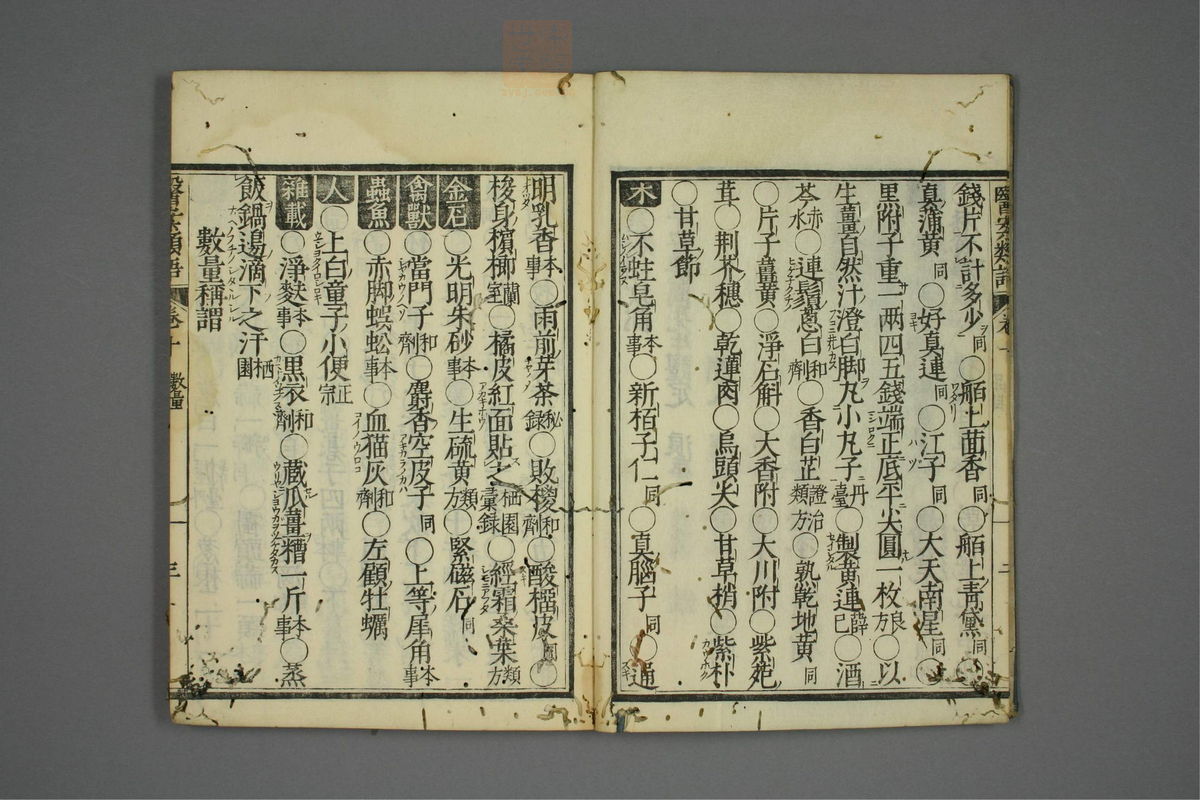 錢片不計多少同○舶上茴香同○舶上青黛同○
真蒲黄同○好真連同○江子同○大天南星同○
黒附子重一兩四五錢端正底平尖圓一枚良方○以
生薑自然汁澄白脚丸小丸子丹臺○製黄連己薛○酒
芩赤水○連鬚葱白和劑○香白芷證治類方○熟乾地黄同
○片子薑黄○淨石斛○大香附○大川附○紫菀
茸○荆芥穗○乾蓮肉○烏頭尖○甘草梢○紫朴
○甘草節
木○不蛀皂角本事○新栢子仁同○真腦子同○通
明乳香本事○雨前芽茶秘録○敗椶和劑○酸榴皮同○
梭身檳榔蘭室○橘皮紅面貼之栖園彙録○經霜桑葉類方
金石○光明朱砂本事○生硫黄類方○緊磁石同
禽獸○當門子和劑○麝香空皮子同○上等犀角本事
蟲魚○赤脚蜈蚣本事○血猫灰和劑○左顧牡蠣
人○上白童子小便正宗
雜載○淨麩本事○黒衣和劑○藏瓜薑糟一斤本事○蒸
飯鍋邊滴下之汗栖園
數量稱謂